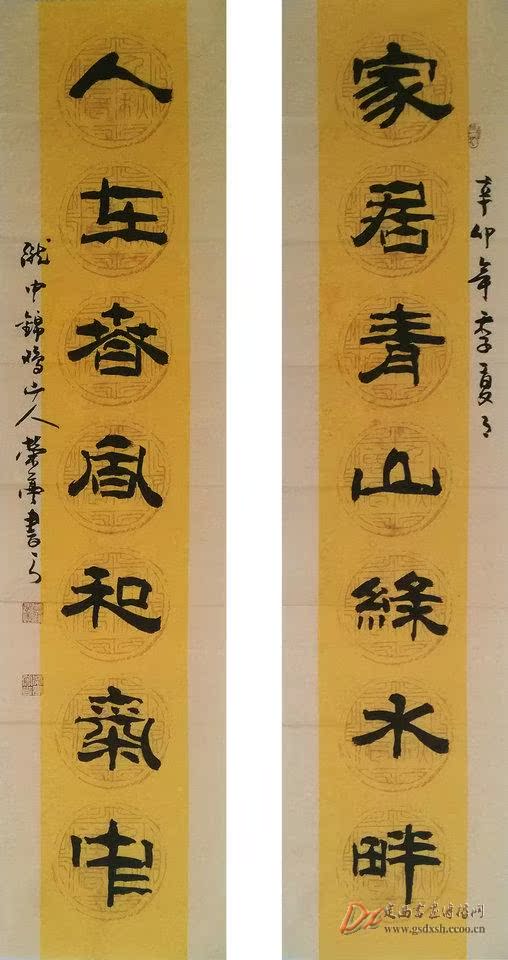 辛卯年季夏月
家居青山綠水畔
人在春風和氣中
陇中錦鸡山人榮夢書之
定西书画传播网
www.gsdxsh.ccoo.cn